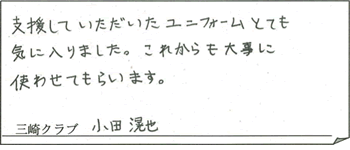 支援していただいたユニフォームとても
気に入りました。これからも大事に
使わせてもらいます。
三崎クラブ 小田滉也